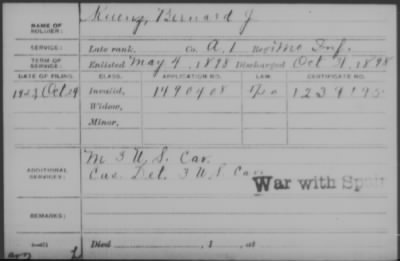 NAME OF SOLDIER: Bernard J
SERVICE: Late rank, Co. A, 1 Reg't Mo Inf.
TERM OF SERVICE: Enlisted May 4, 1898 Discharged Oct 31, 1898
DATE OF FILING. CLASS. APPLICATION NO. LAW. CERTIFICATE NO.
Oct Invalid, 1490908
Widow,
Minor,
ADDITIONAL SERVICES: M 3 U.S. Cav.
Cas. Det. 3 U.S. Cav.
War with Spain
REMARKS:
Died , 1 , at